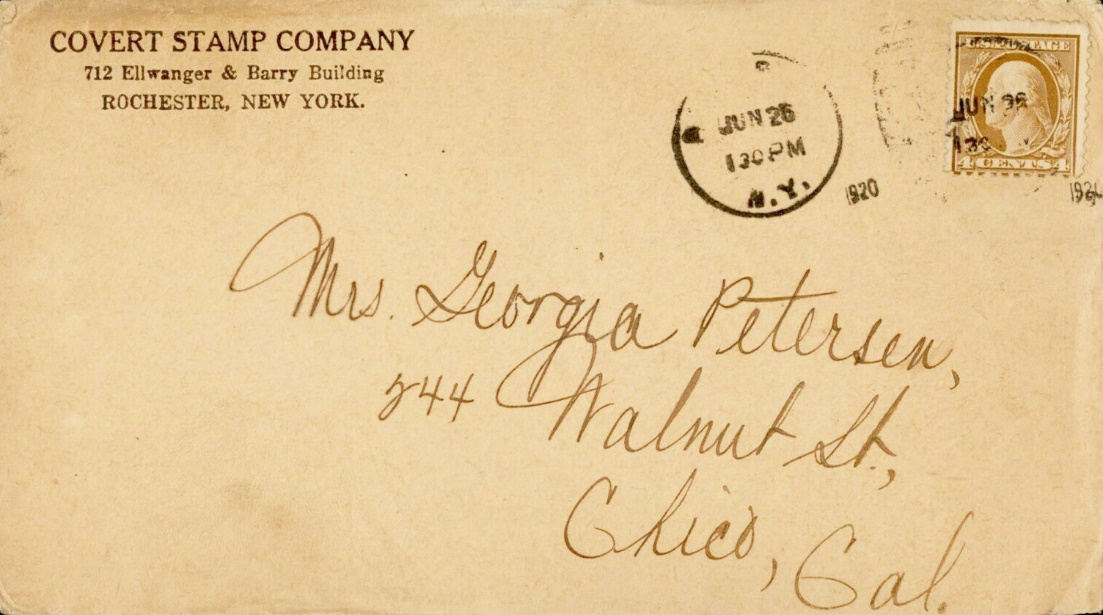 COVERT STAMP COMPANY
712 Ellwanger & Barry Building
ROCHESTER, NEW YORK.
JUN 26
130 PM
N.Y.
1920
U.S. POSTAGE
JUN 26
130
4 CENTS 4
Mrs. Georgia Petersen,
244 Walnut St.,
Chico, Cal.